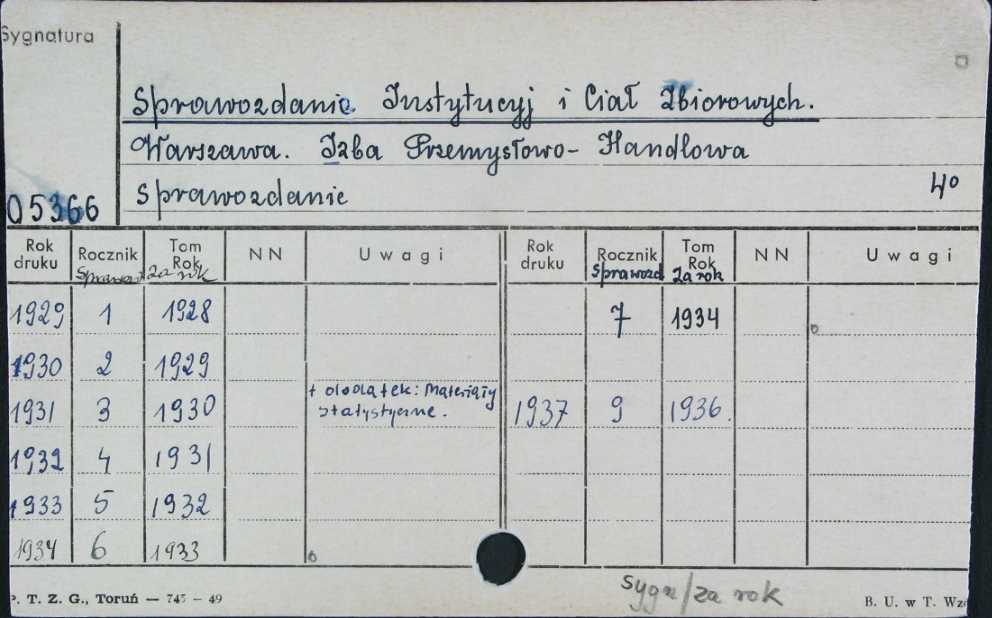 Sygnatura
Sprawozdanie Instytucyj i Ciał Zbiorowych.
Warszawa. Izba Przemysłowo-Handlowa
Sprawozdanie 4°
05366
Rok druku Rocznik Tom Rok NN Uwagi Rok druku Rocznik Tom Rok NN Uwagi
za rok Sprawozd za rok
1929 1 1928 7 1934
1930 2 1929
1931 3 1930 + dodatek: Materiały statystyczne. 1937 9 1936.
1932 4 1931
1933 5 1932
1934 6 1933
sygn/za rok
P. T. Z. G., Toruń — 745 — 49 B. U. w T. Wzó